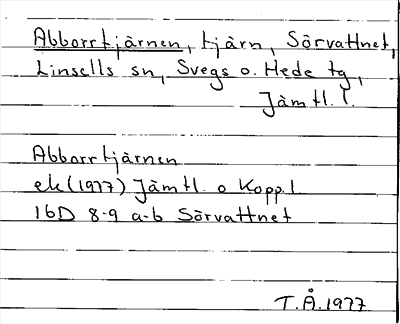 Abborrtjärnen, tjärn, Sörvattnet,
Linsells sn, Svegs o. Hede tg,
Jämtl. l.
Abborrtjärnen
ek (1977) Jämtl. o Koppl
16D 8-9 a-b Sörvattnet
T.Å. 1977